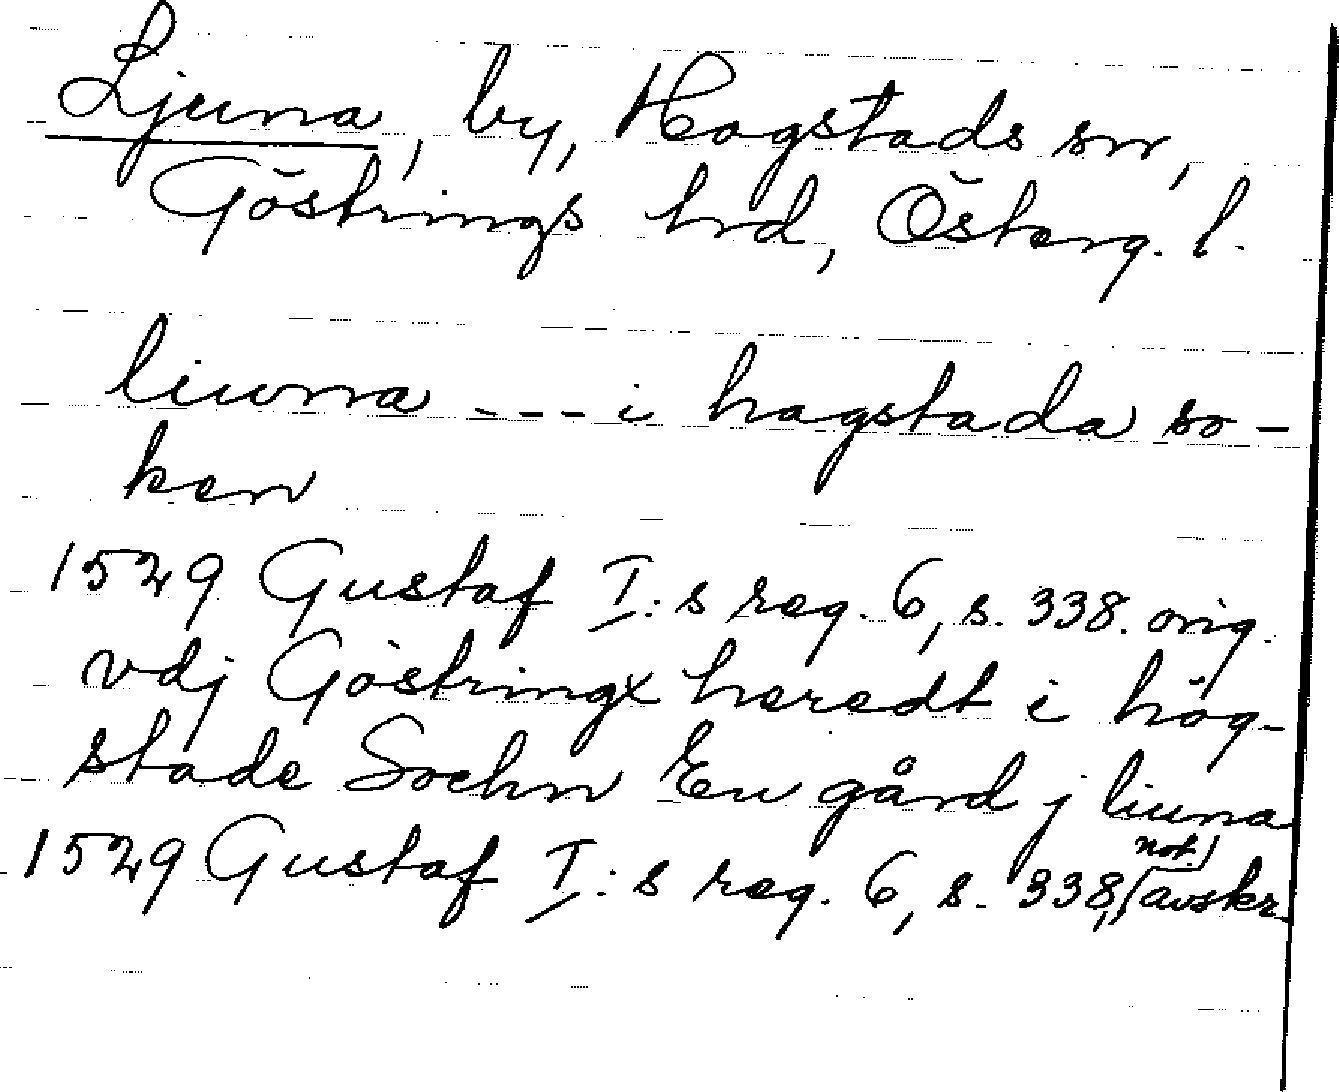 Ljuna, by, Hogstads sn,
Göstrings hrd, Österg. l.
liwna --- i hagstada so-
ken
1529 Gustaf I:s reg. 6, s. 338. orig.
vdj Göstringx heredt i hög-
stade Sochn En gård j liuna
1529 Gustaf I:s reg. 6, s. 338, (not) avskr.